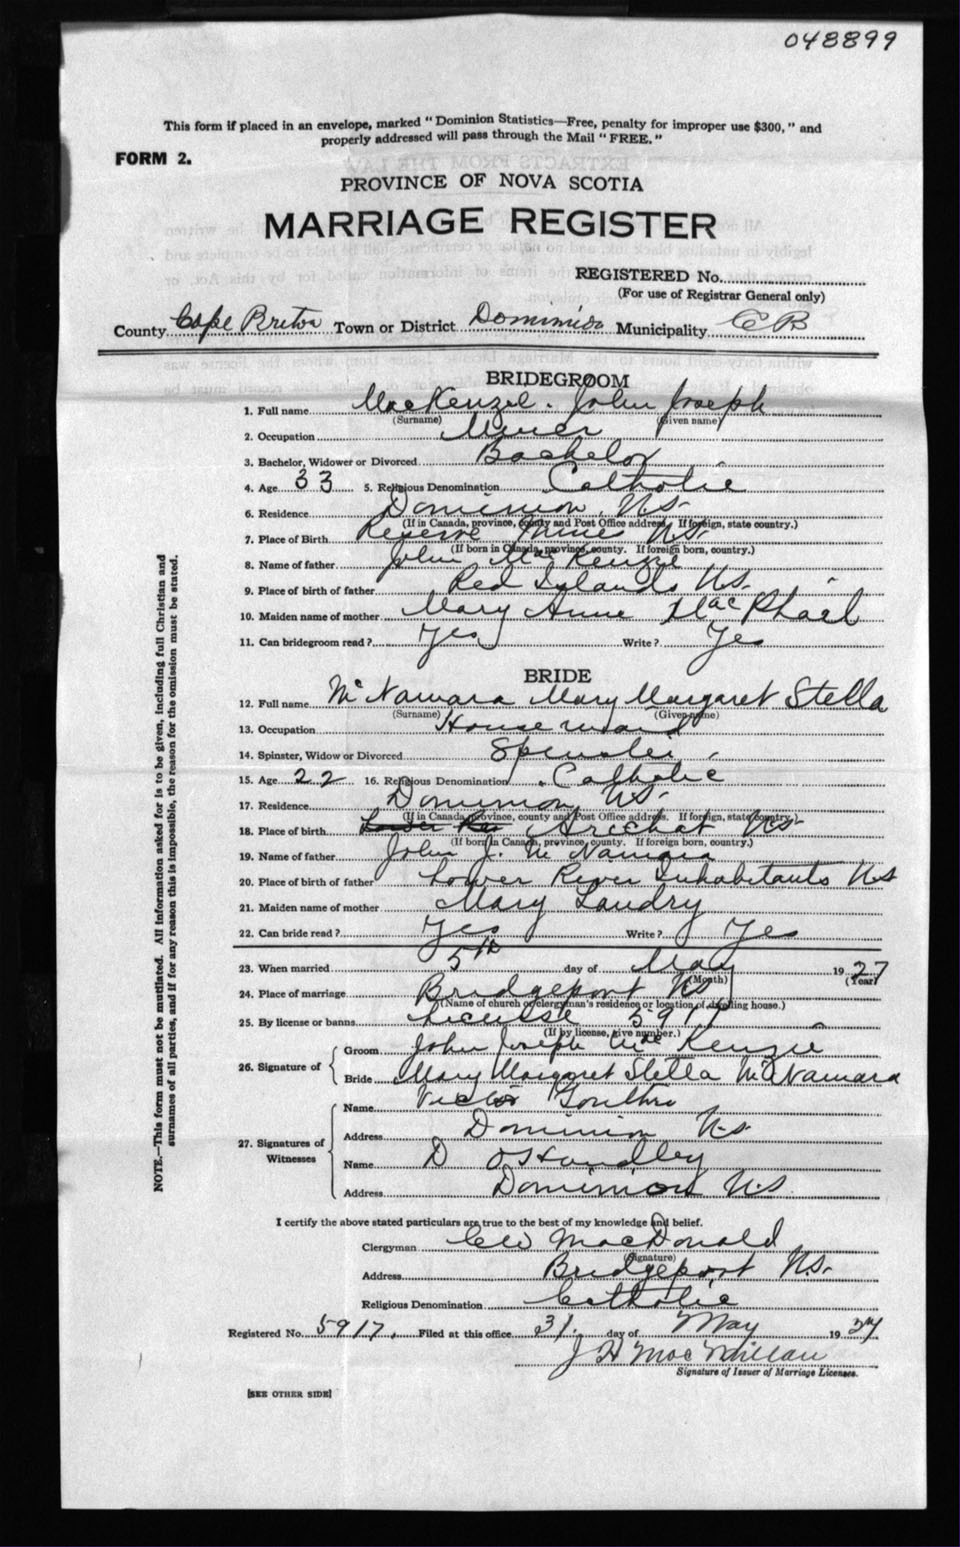 048899
This form if placed in an envelope, marked "Dominion Statistics—Free, penalty for improper use $300," and
properly addressed will pass through the Mail "FREE."
FORM 2.
PROVINCE OF NOVA SCOTIA
MARRIAGE REGISTER
REGISTERED No.
(For use of Registrar General only)
County Cape Breton Town or District Dominion Municipality C B
BRIDEGROOM
1. Full name MacKenzie. John Joseph
(Surname) (Given name)
2. Occupation Miner
3. Bachelor, Widower or Divorced Bachelor
4. Age 33 5. Religious Denomination Catholic
6. Residence Dominion, N.S.
(If in Canada, province, county and Post Office address. If foreign, state country.)
7. Place of Birth Reserve Mines N.S.
(If born in Canada, province, county. If foreign born, country.)
8. Name of father John MacKenzie
9. Place of birth of father Red Islands N.S.
10. Maiden name of mother Mary Anne MacPhail
11. Can bridegroom read? Yes Write? Yes
BRIDE
12. Full name McNamara Mary Margaret Stella
(Surname) (Given name)
13. Occupation Housemaid
14. Spinster, Widow or Divorced Spinster
15. Age 22 16. Religious Denomination Catholic
17. Residence Dominion N.S.
(If in Canada, province, county and Post Office address. If foreign, state country.)
18. Place of birth Lower River Arichat N.S.
(If born in Canada, province, county. If foreign born, country.)
19. Name of father John J. McNamara
20. Place of birth of father Lower River Inhabitants N.S
21. Maiden name of mother Mary Landry
22. Can bride read? Yes Write? Yes
23. When married 5th day of May 1927
(Month) (Year)
24. Place of marriage Bridgeport N.S
(Name of church or clergyman's residence or location of dwelling house.)
25. By license or banns License 5917
(If by license, give number.)
26. Signature of
Groom John Joseph McKenzie
Bride Mary Margaret Stella McNamara
27. Signatures of Witnesses
Name Victor Gouthro
Address Dominion N.S.
Name D O'Handley
Address Dominion N.S
I certify the above stated particulars are true to the best of my knowledge and belief.
Clergyman CW MacDonald
(Signature)
Address Bridgeport N.S.
Religious Denomination Catholic
Registered No. 5917. Filed at this office 31. day of May 1927
J H MacMillan
Signature of Issuer of Marriage Licenses.
[SEE OTHER SIDE]
NOTE.—This form must not be mutilated. All information asked for is to be given, including full Christian and
surnames of all parties, and if for any reason this is impossible, the reason for the omission must be stated.